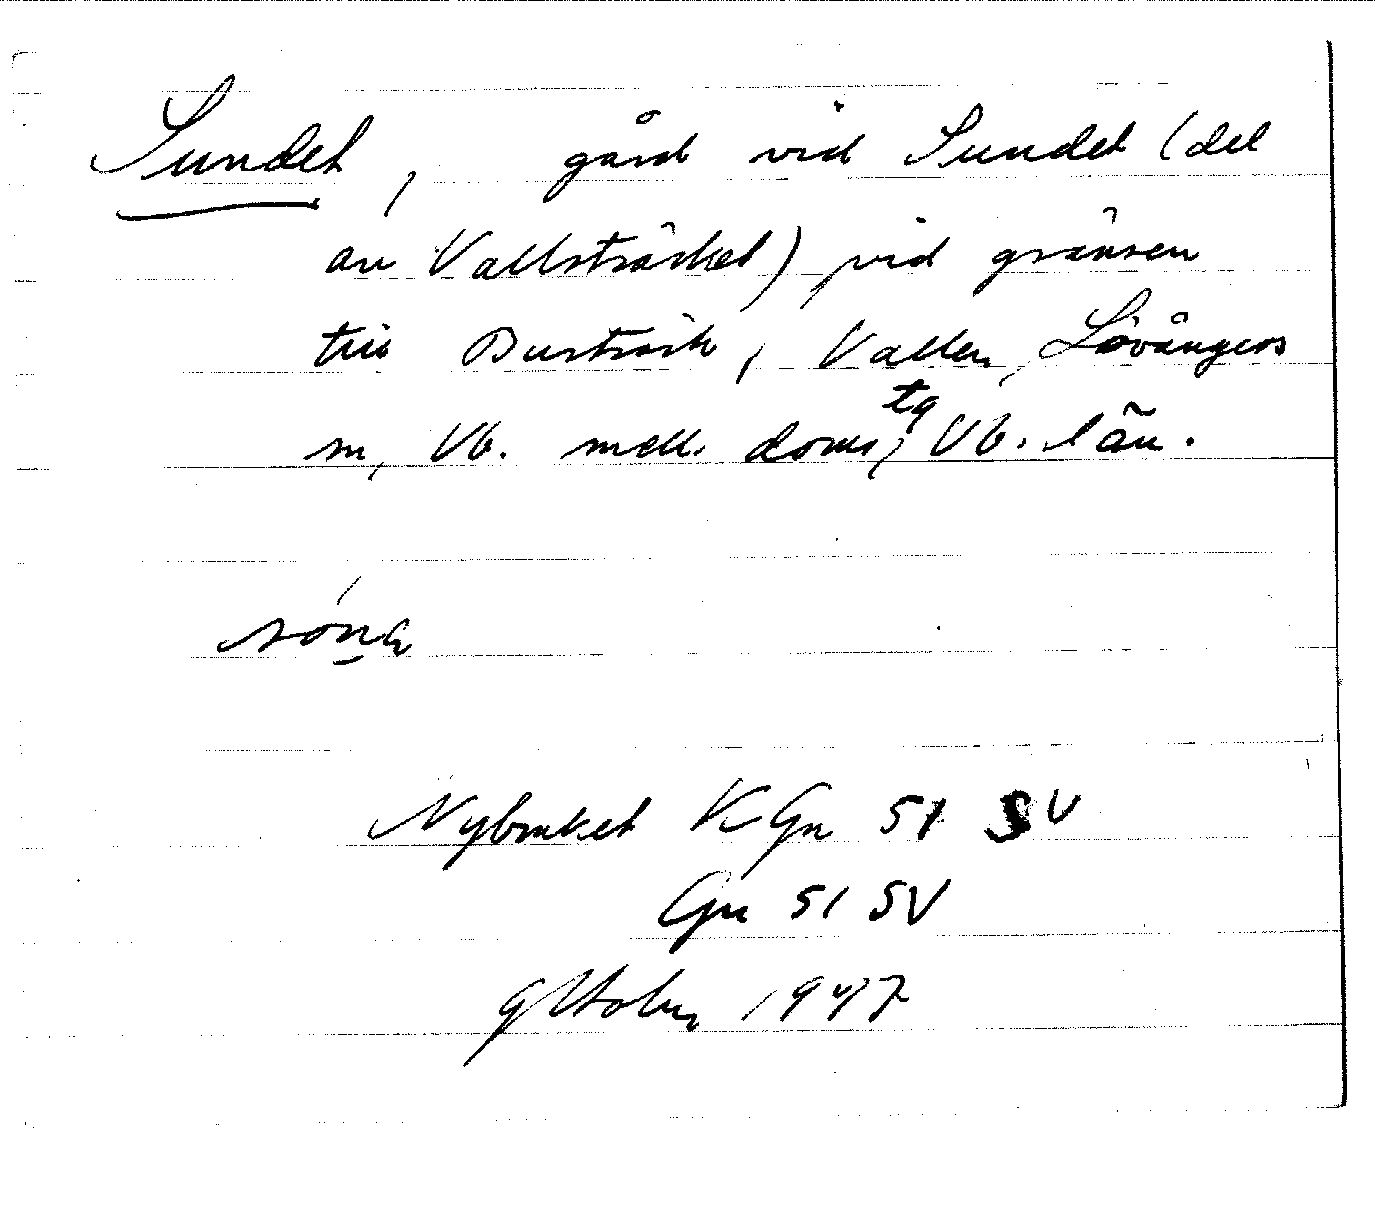 Sundet, gård vid Sundet (del
av Vallsträsket) vid gränsen
till Burträsk, Vallen, Lövångers
sn, Vb. mell. doms, tg Vb. län.
Nybruket K Gn 51 SV
Gn 51 SV
1947